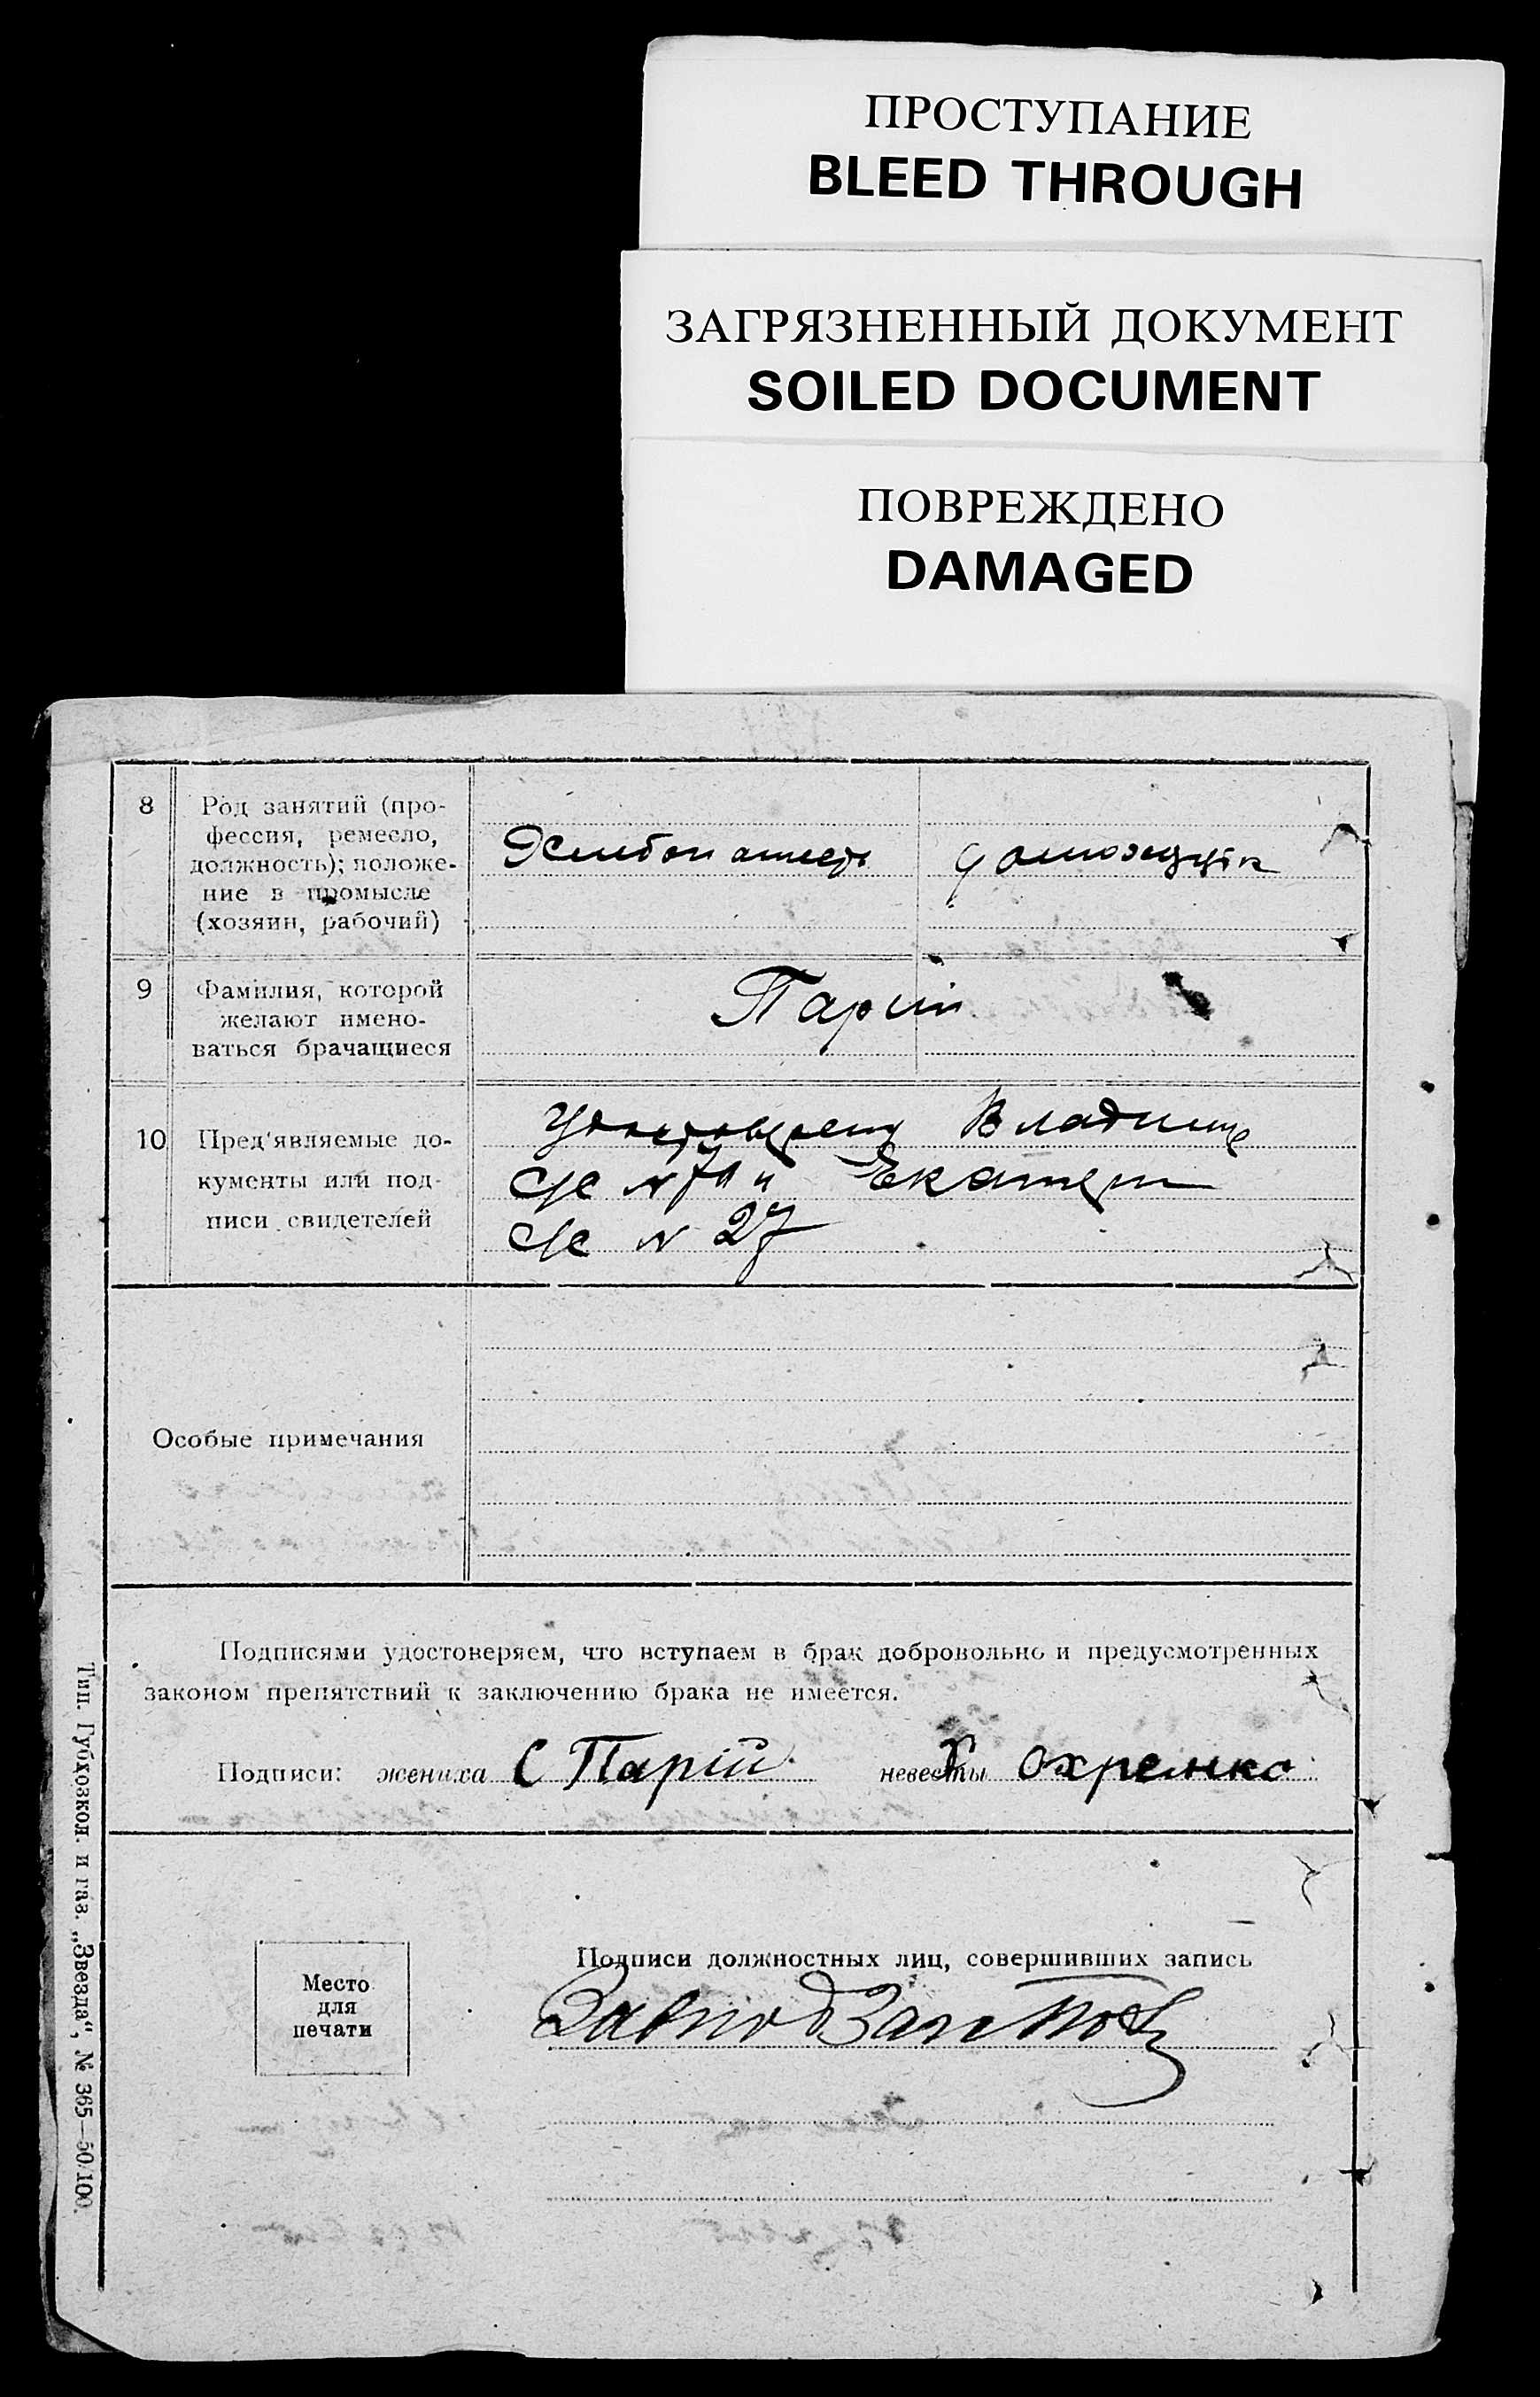 ПРОСТУПАНИЕ
BLEED THROUGH
ЗАГРЯЗНЕННЫЙ ДОКУМЕНТ
SOILED DOCUMENT
ПОВРЕЖДЕНО
DAMAGED
8
Род занятий (про-
фессия, ремесло,
должность); положе-
ние в промысле
(хозяин, рабочий)
9
Фамилия, которой
желают имено-
ваться брачащиеся
Парий
10
Пред'являемые до-
кументы или под-
писи свидетелей
Владими
с/с N 71 и Екатери
с/с N 27
Особые примечания
Подписями удостоверяем, что вступаем в брак добровольно и предусмотренных
законом препятствий к заключению брака не имеется.
Подписи: жениха С Парій невесты Х Охремко
Место
для
печати
Подписи должностных лиц, совершивших запись
Тип. Губхозкол. и газ. „Звезда“, № 365—50/100.